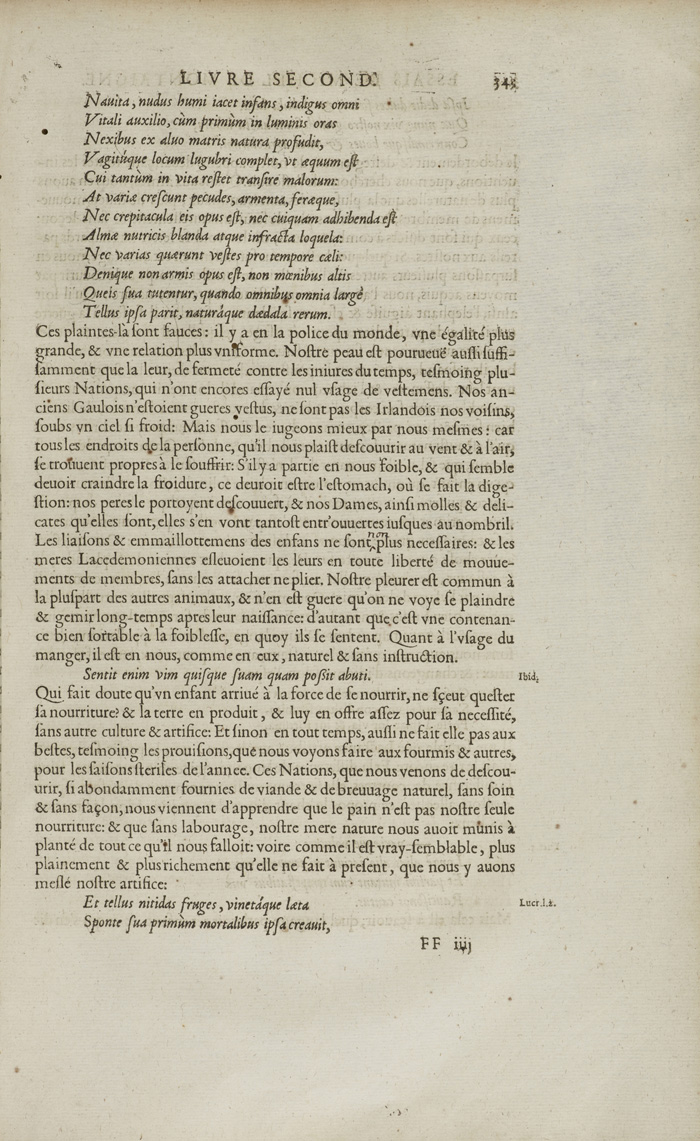 LIVRE SECOND.
343
Nauita, nudus humi iacet infans, indigus omni
Vitali auxilio, cùm primùm in luminis oras
Nexibus ex aluo matris natura profudit,
Vagitúque locum lugubri complet, vt æquum est
Cui tantùm in vita restet transire malorum:
At variæ crescunt pecudes, armenta, feræque,
Nec crepitacula eis opus est, nec cuiquam adhibenda est
Almæ nutricis blanda atque infracta loquela:
Nec varias quærunt vestes pro tempore cæli:
Denique non armis opus est, non mœnibus altis
Queis sua tutentur, quando omnibus omnia largè
Tellus ipsa parit, naturáque dædala rerum.
Ces plaintes-là sont fauces: il y a en la police du monde, vne égalité plus
grande, & vne relation plus vniforme. Nostre peau est pourueuë aussi suffi-
samment que la leur, de fermeté contre les iniures du temps, tesmoing plu-
sieurs Nations, qui n'ont encores essayé nul vsage de vestemens. Nos an-
ciens Gaulois n'estoient gueres vestus, ne sont pas les Irlandois nos voisins,
soubs vn ciel si froid: Mais nous le iugeons mieux par nous mesmes: car
tous les endroits de la personne, qu'il nous plaist descouurir au vent & à l'air,
se trouuent propres à le souffrir: S'il y a partie en nous foible, & qui semble
deuoir craindre la froidure, ce deuroit estre l'estomach, où se fait la dige-
stion: nos peres le portoyent descouuert, & nos Dames, ainsi molles & deli-
cates qu'elles sont, elles s'en vont tantost entr'ouuertes iusques au nombril.
Les liaisons & emmaillottemens des enfans ne sont non plus necessaires: & les
meres Lacedemoniennes esleuoient les leurs en toute liberté de mouue-
ments de membres, sans les attacher ne plier. Nostre pleurer est commun à
la pluspart des autres animaux, & n'en est guere qu'on ne voye se plaindre
& gemir long-temps apres leur naissance: d'autant que c'est vne contenan-
ce bien sortable à la foiblesse, en quoy ils se sentent. Quant à l'vsage du
manger, il est en nous, comme en eux, naturel & sans instruction.
Sentit enim vim quisque suam quam possit abuti.
Ibid.
Qui fait doute qu'vn enfant arriué à la force de se nourrir, ne sçeut quester
sa nourriture? & la terre en produit, & luy en offre assez pour sa necessité,
sans autre culture & artifice: Et sinon en tout temps, aussi ne fait elle pas aux
bestes, tesmoing les prouisions, que nous voyons faire aux fourmis & autres,
pour les saisons steriles de l'annee. Ces Nations, que nous venons de descou-
urir, si abondamment fournies de viande & de breuuage naturel, sans soin
& sans façon, nous viennent d'apprendre que le pain n'est pas nostre seule
nourriture: & que sans labourage, nostre mere nature nous auoit munis à
planté de tout ce qu'il nous falloit: voire comme il est vray-semblable, plus
plainement & plus richement qu'elle ne fait à present, que nous y auons
meslé nostre artifice:
Et tellus nitidas fruges, vinetáque læta
Lucr. l. 2.
Sponte sua primùm mortalibus ipsa creauit,
FF iiij